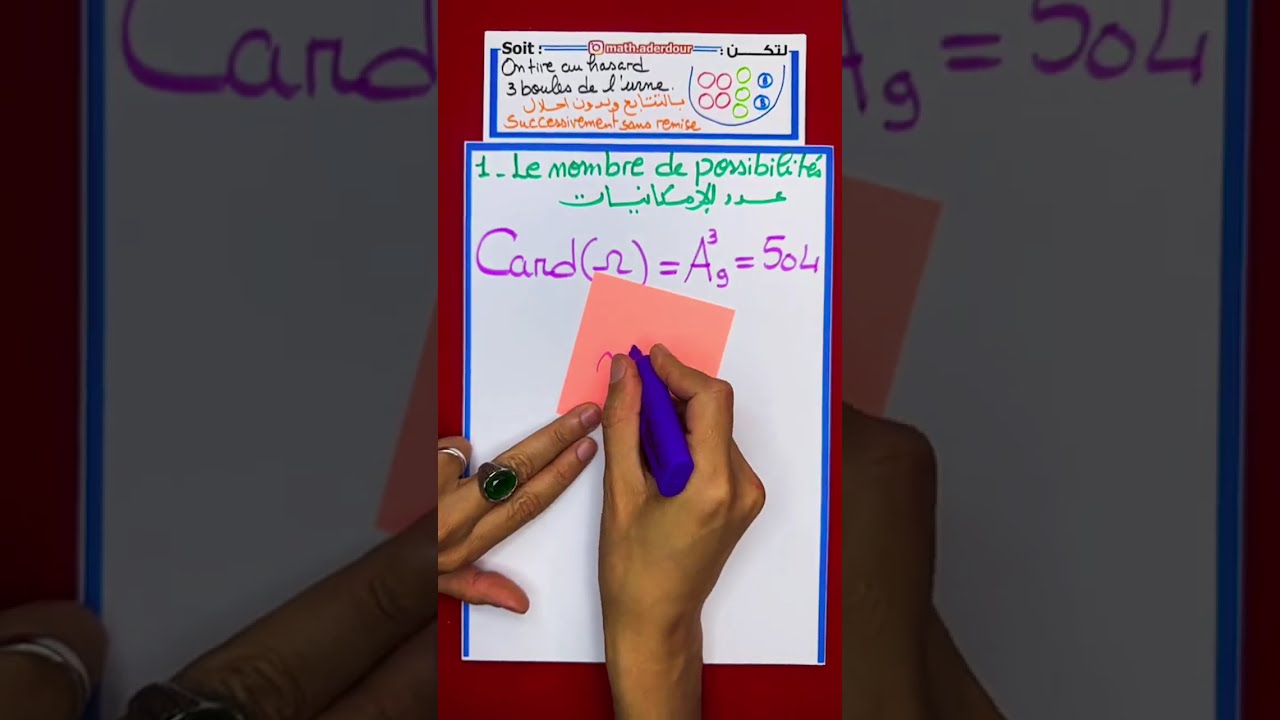 Soit : math.aderdour لتكن :
On tire au hasard
3 boules de l'urne.
بالتتابع وبدون احلال
Successivement sans remise
1 - Le nombre de possibilités
عدد الإمكانيات
Card(Ω) = A³₉ = 504